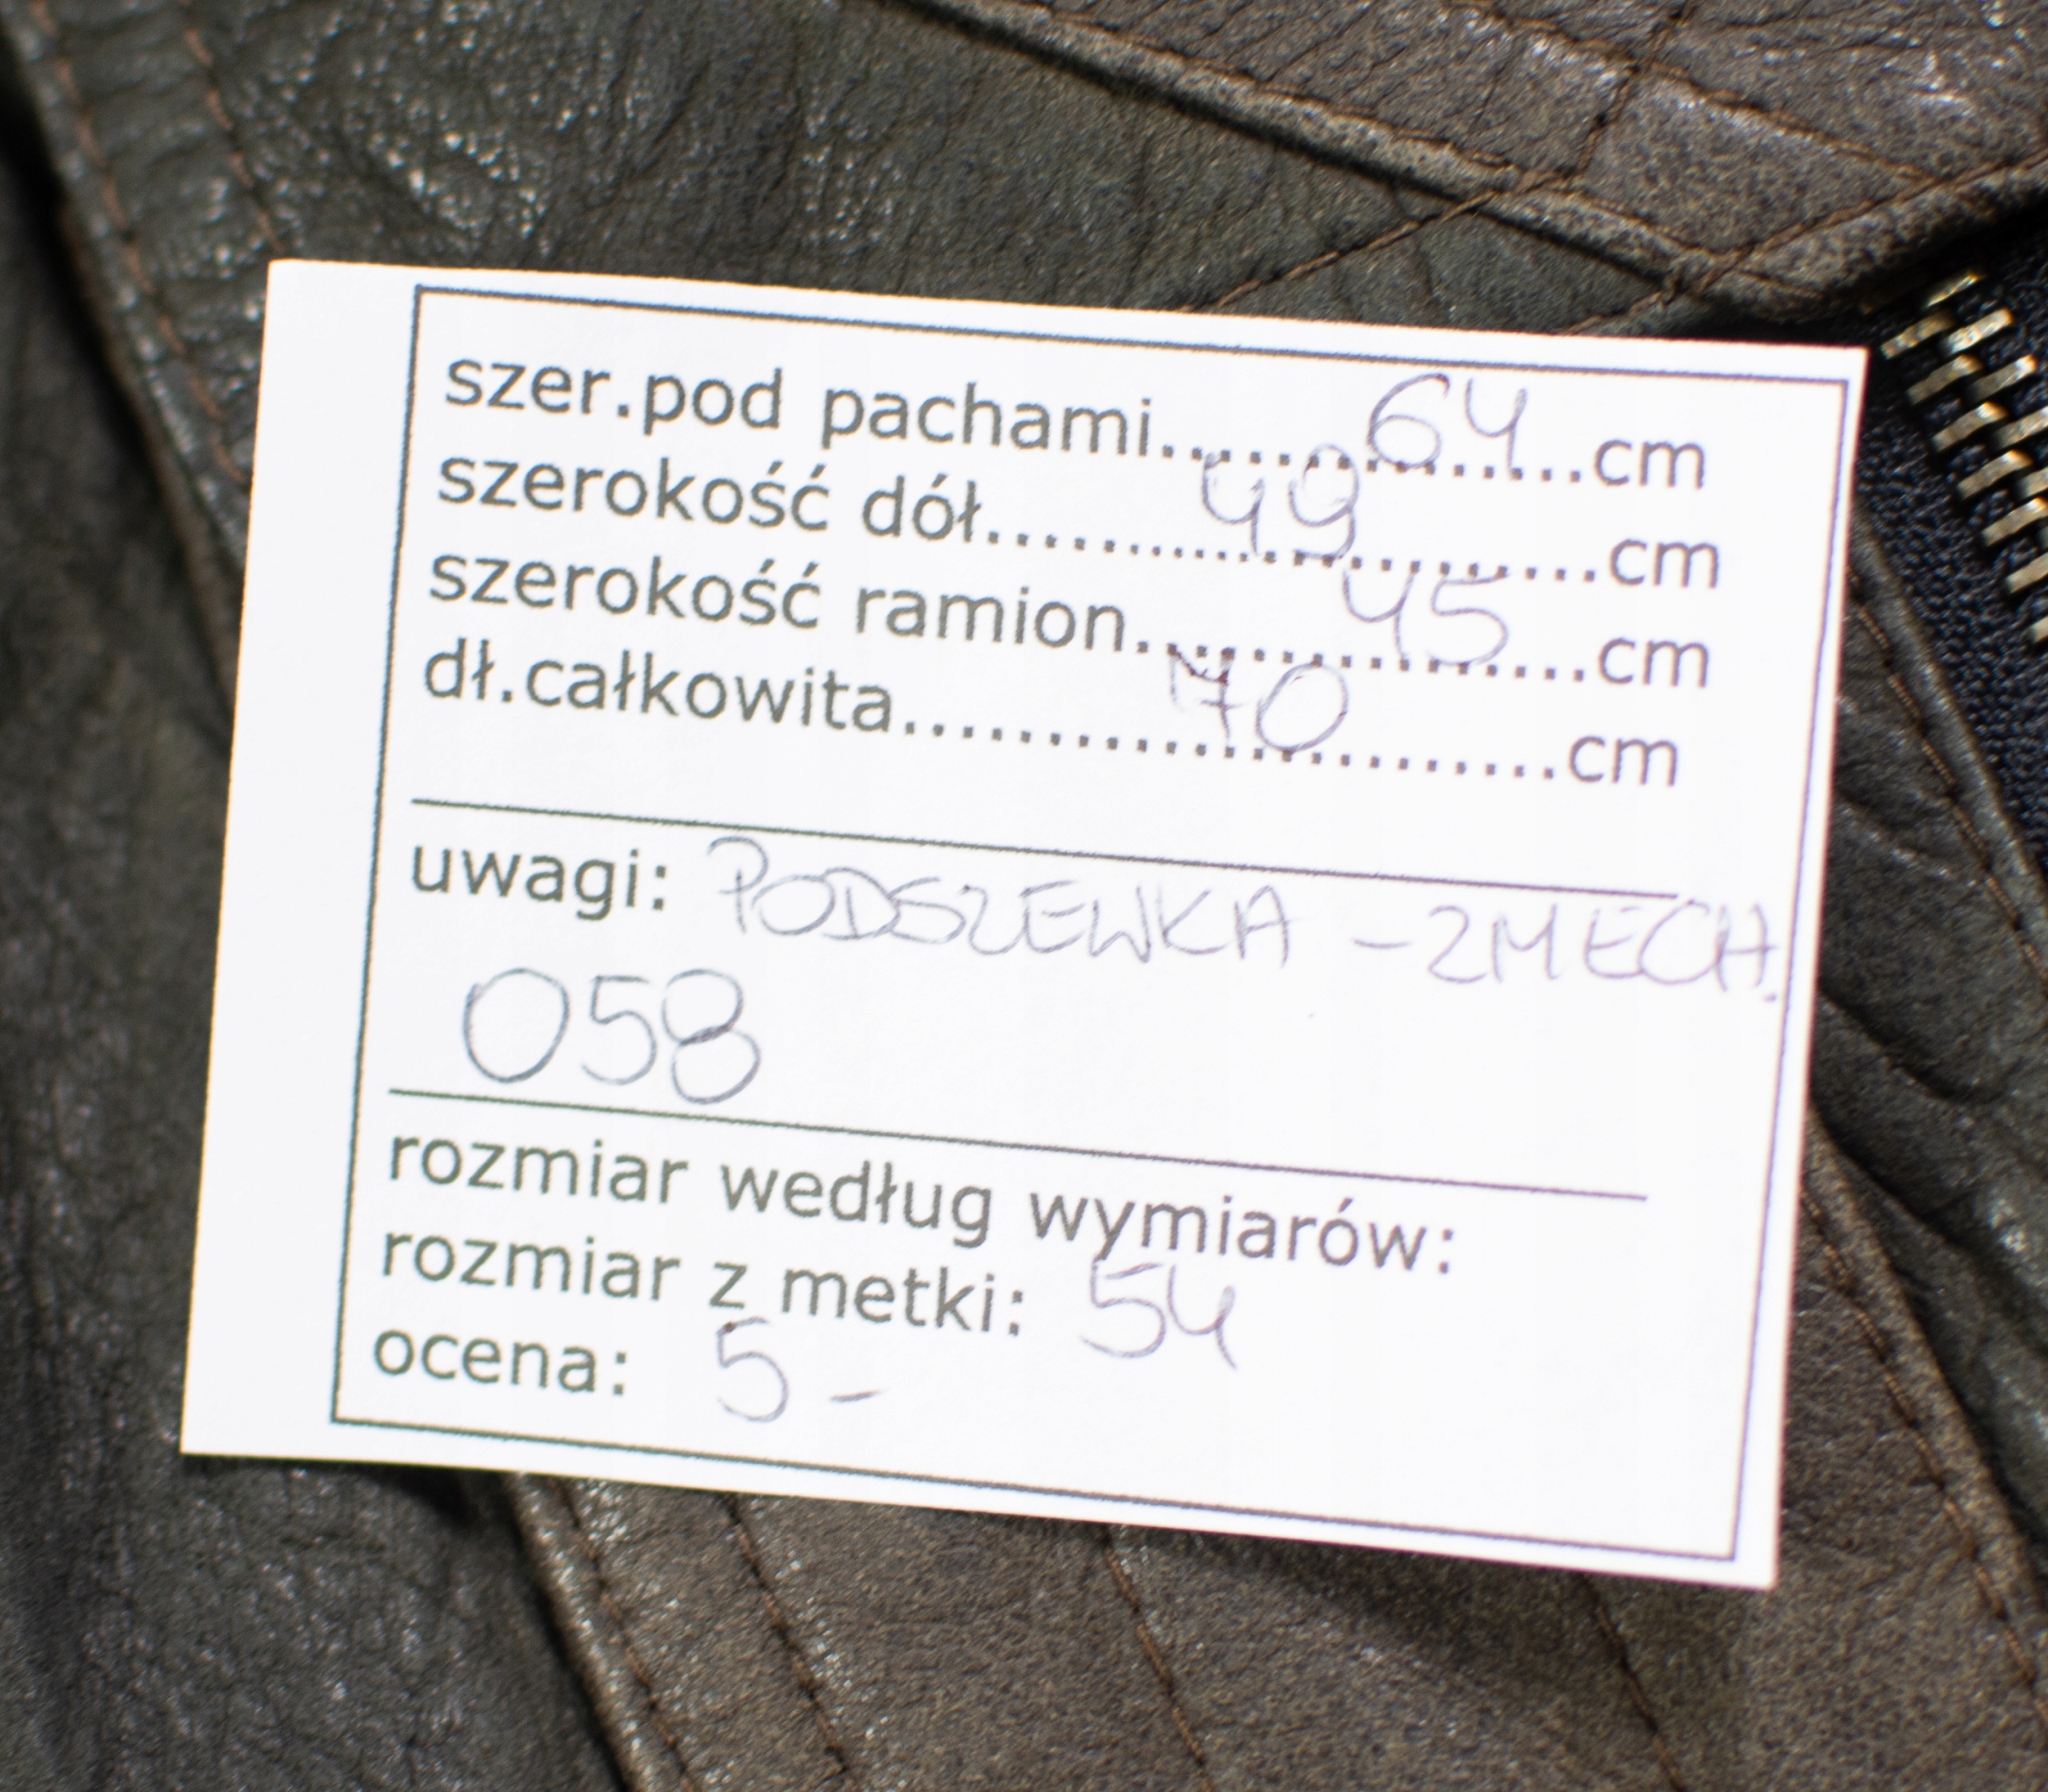 szer.pod pachami........64....cm
szerokość dół........49........cm
szerokość ramion.......45...cm
dł.całkowita.........70.......cm
uwagi: PODSZEWKA - ZMECH.
058
rozmiar według wymiarów:
rozmiar z metki: 54
ocena: 5 -